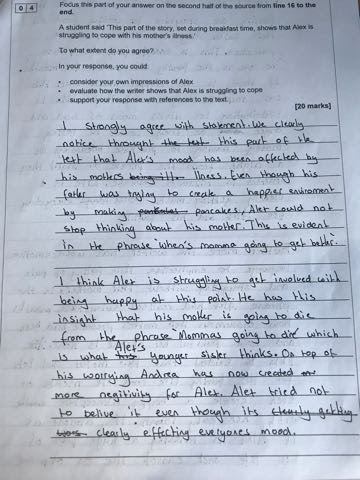 0 4
Focus this part of your answer on the second half of the source from line 16 to the
end.
A student said 'This part of the story, set during breakfast time, shows that Alex is
struggling to cope with his mother's illness.'
To what extent do you agree?
In your response, you could:
• consider your own impressions of Alex
• evaluate how the writer shows that Alex is struggling to cope
• support your response with references to the text.
[20 marks]
I strongly agree with statement. We clearly
notice throught the text this part of the
text that Alex's mood has been affected by
his mothers being ill. Ilness. Even though his
father was trying to create a happier enviroment
by making pancakes, Alex could not
stop thinking about his mother. This is evident
in the phrase 'when's momma going to get better.
I think Alex is struggling to get involved with
being happy at this point. He has this
insight that his mother is going to die
from the phrase 'Mommas going to die' which
is what Alex's younger sister thinks. On top of
his worrying Andrea has now created
more negitivity for Alex. Alex tried not
to belive it even though its clearly getting
clearly effecting everyones mood.